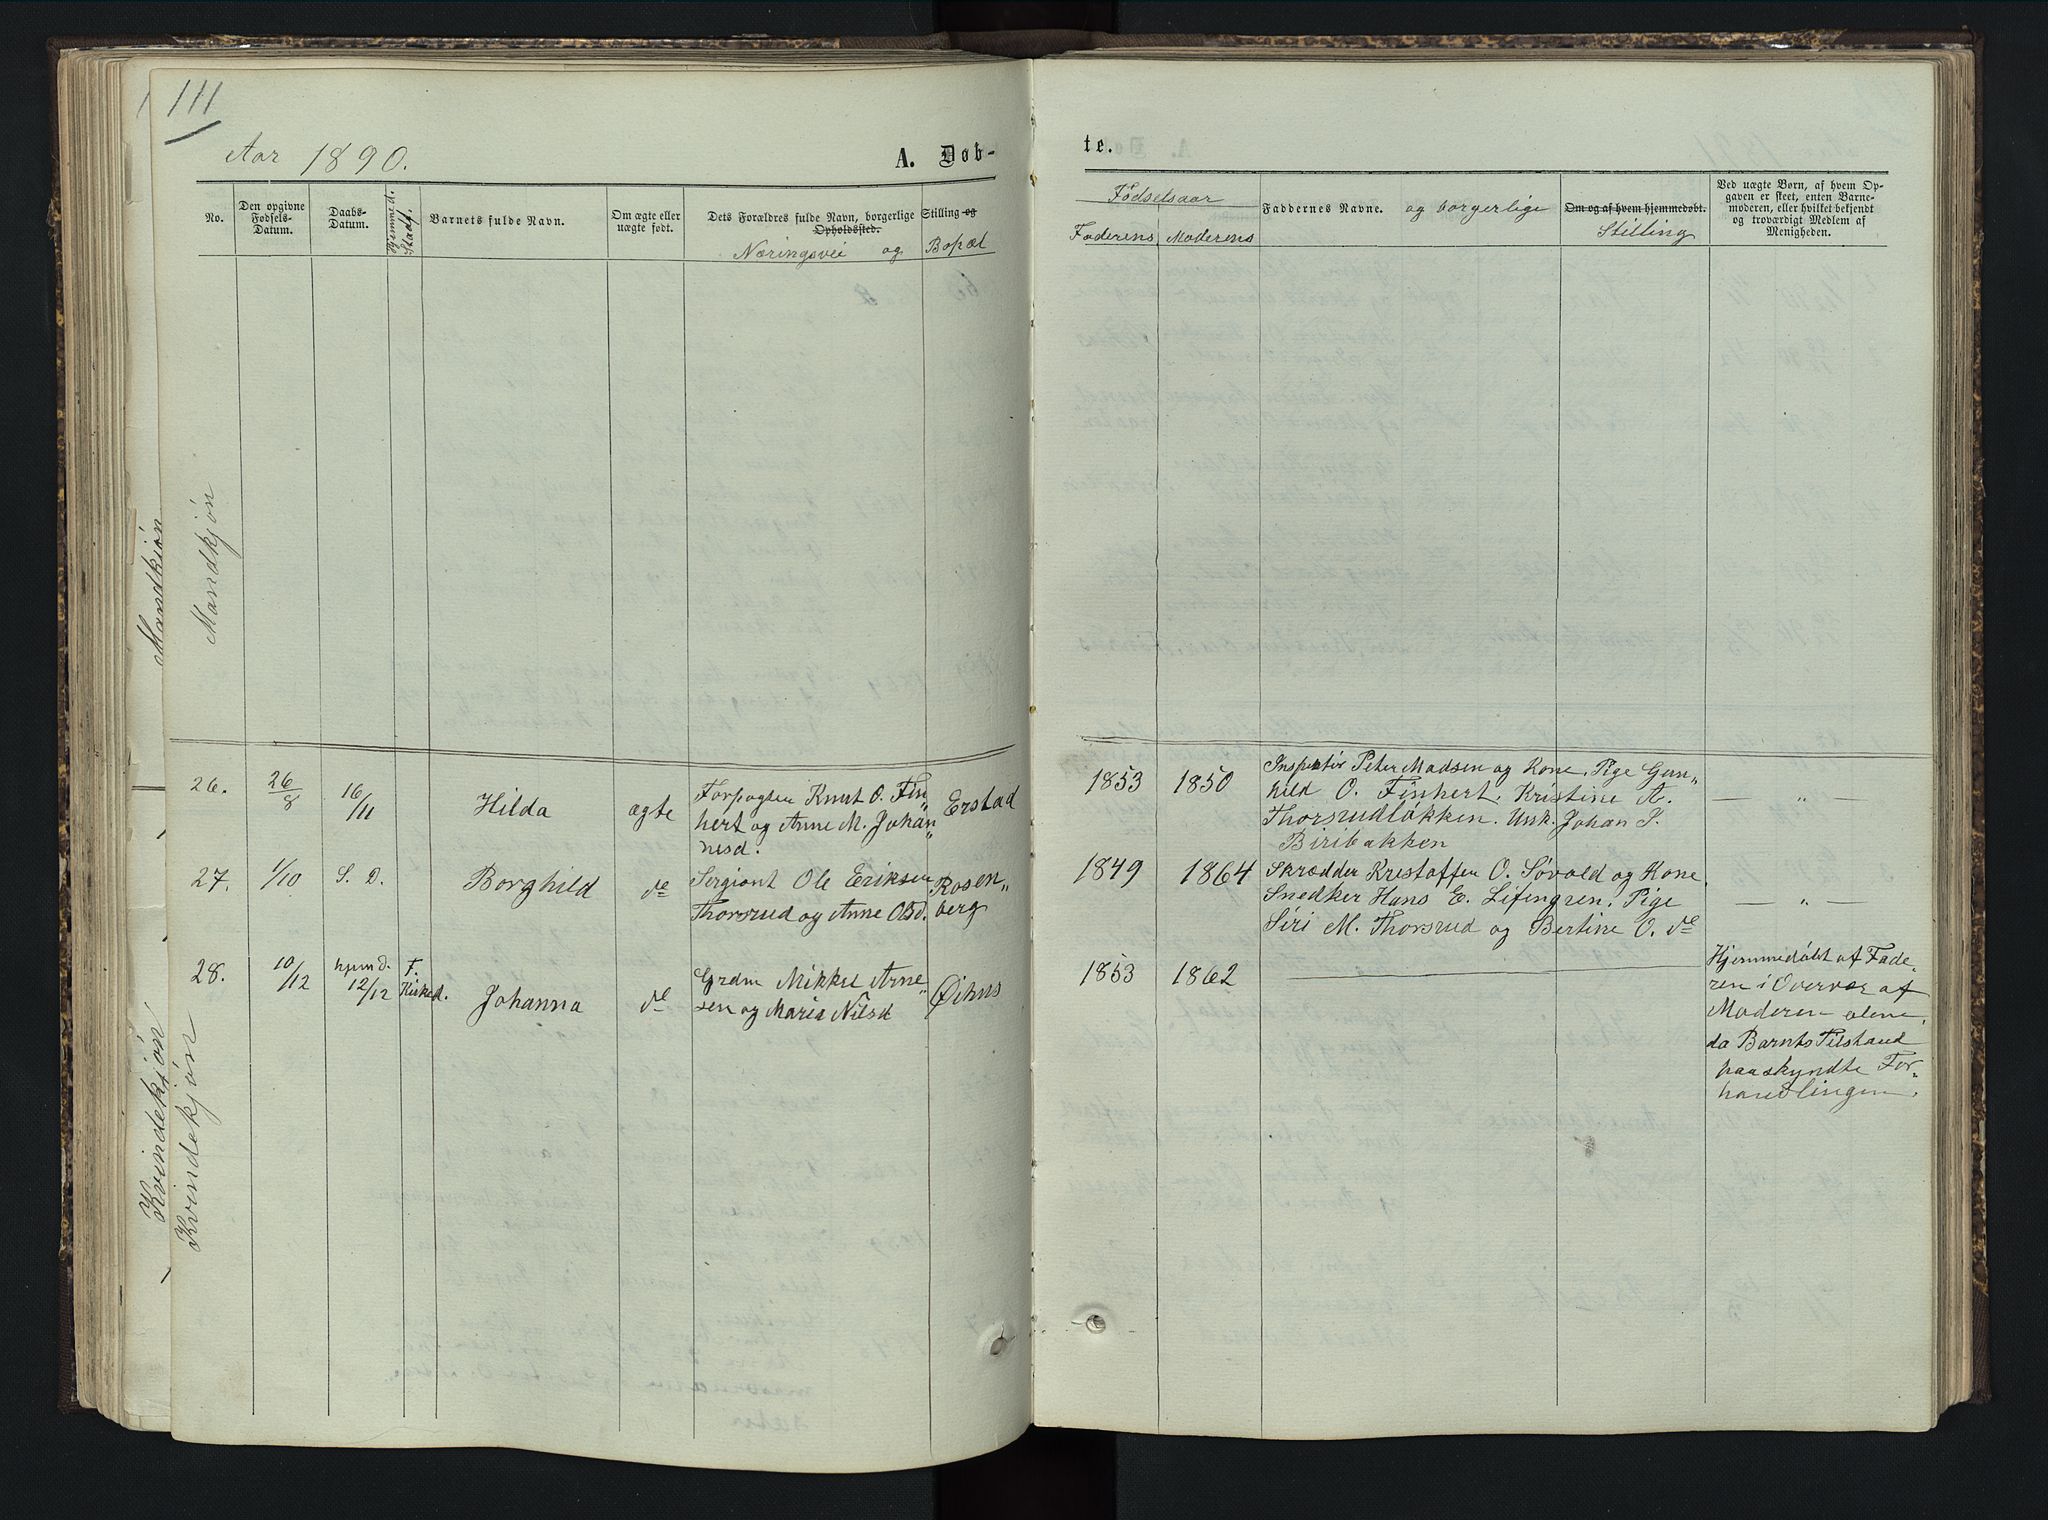 111
Aar 1890.
A. Døb-
te.
No.
Den opgivne Fødsels-Datum.
Daabs-Datum.
Hjimmed. Stadf.
Barnets fulde Navn.
Om ægte eller uægte født.
Dets Forældres fulde Navn, borgerlige Stilling og Opholdssted.
Næringsvei og Bopæl
Fødselsaar
Faderens Moderens
Faddernes Navne. og borgerlige
Om og af hvem hjemmedøbt.
Stilling
Ved uægte Børn, af hvem Op-
gaven er skeet, enten Barne-
moderen, eller hvilket bekjendt
og troværdigt Medlem af
Menigheden.
Mandkjøn
Mandkjøn
26. 26/8 16/11 Hilda ægte
Forpagter Knut O. Fin„
hert og Anne M. Johan„
nesd.
Erstad
1853 1850
Inspektør Peter Madsen og Kone, Pige Gun„
hild O. Finhert, Kristine A.
Thorsrudløkken. Unk. Johan S.
Biribakken
— „ —
27. 1/10 S. D. Borghild de
Sergiant Ole Eriksen
Thorsrud og Anne Olsd.
Rosen„
berg
1849 1864
Skrædder Kristoffer O. Søvold og Kone,
Snedker Hans E. Lifengren, Pige
Siri M. Thorsrud og Bertine O. de
— „ —
28. 10/12 hjemd. 12/12 F. Kirked. Johanna de
Grdm Mikkel Arne
sen og Maria Nilsd
Øihus
1853 1862
Hjemmedøbt af Fade-
ren i Overvær af
Moderen alene,
da Barnets Tilstand
paaskyndte For-
handlingen.
Kvindekjøn
Kvindekjøn